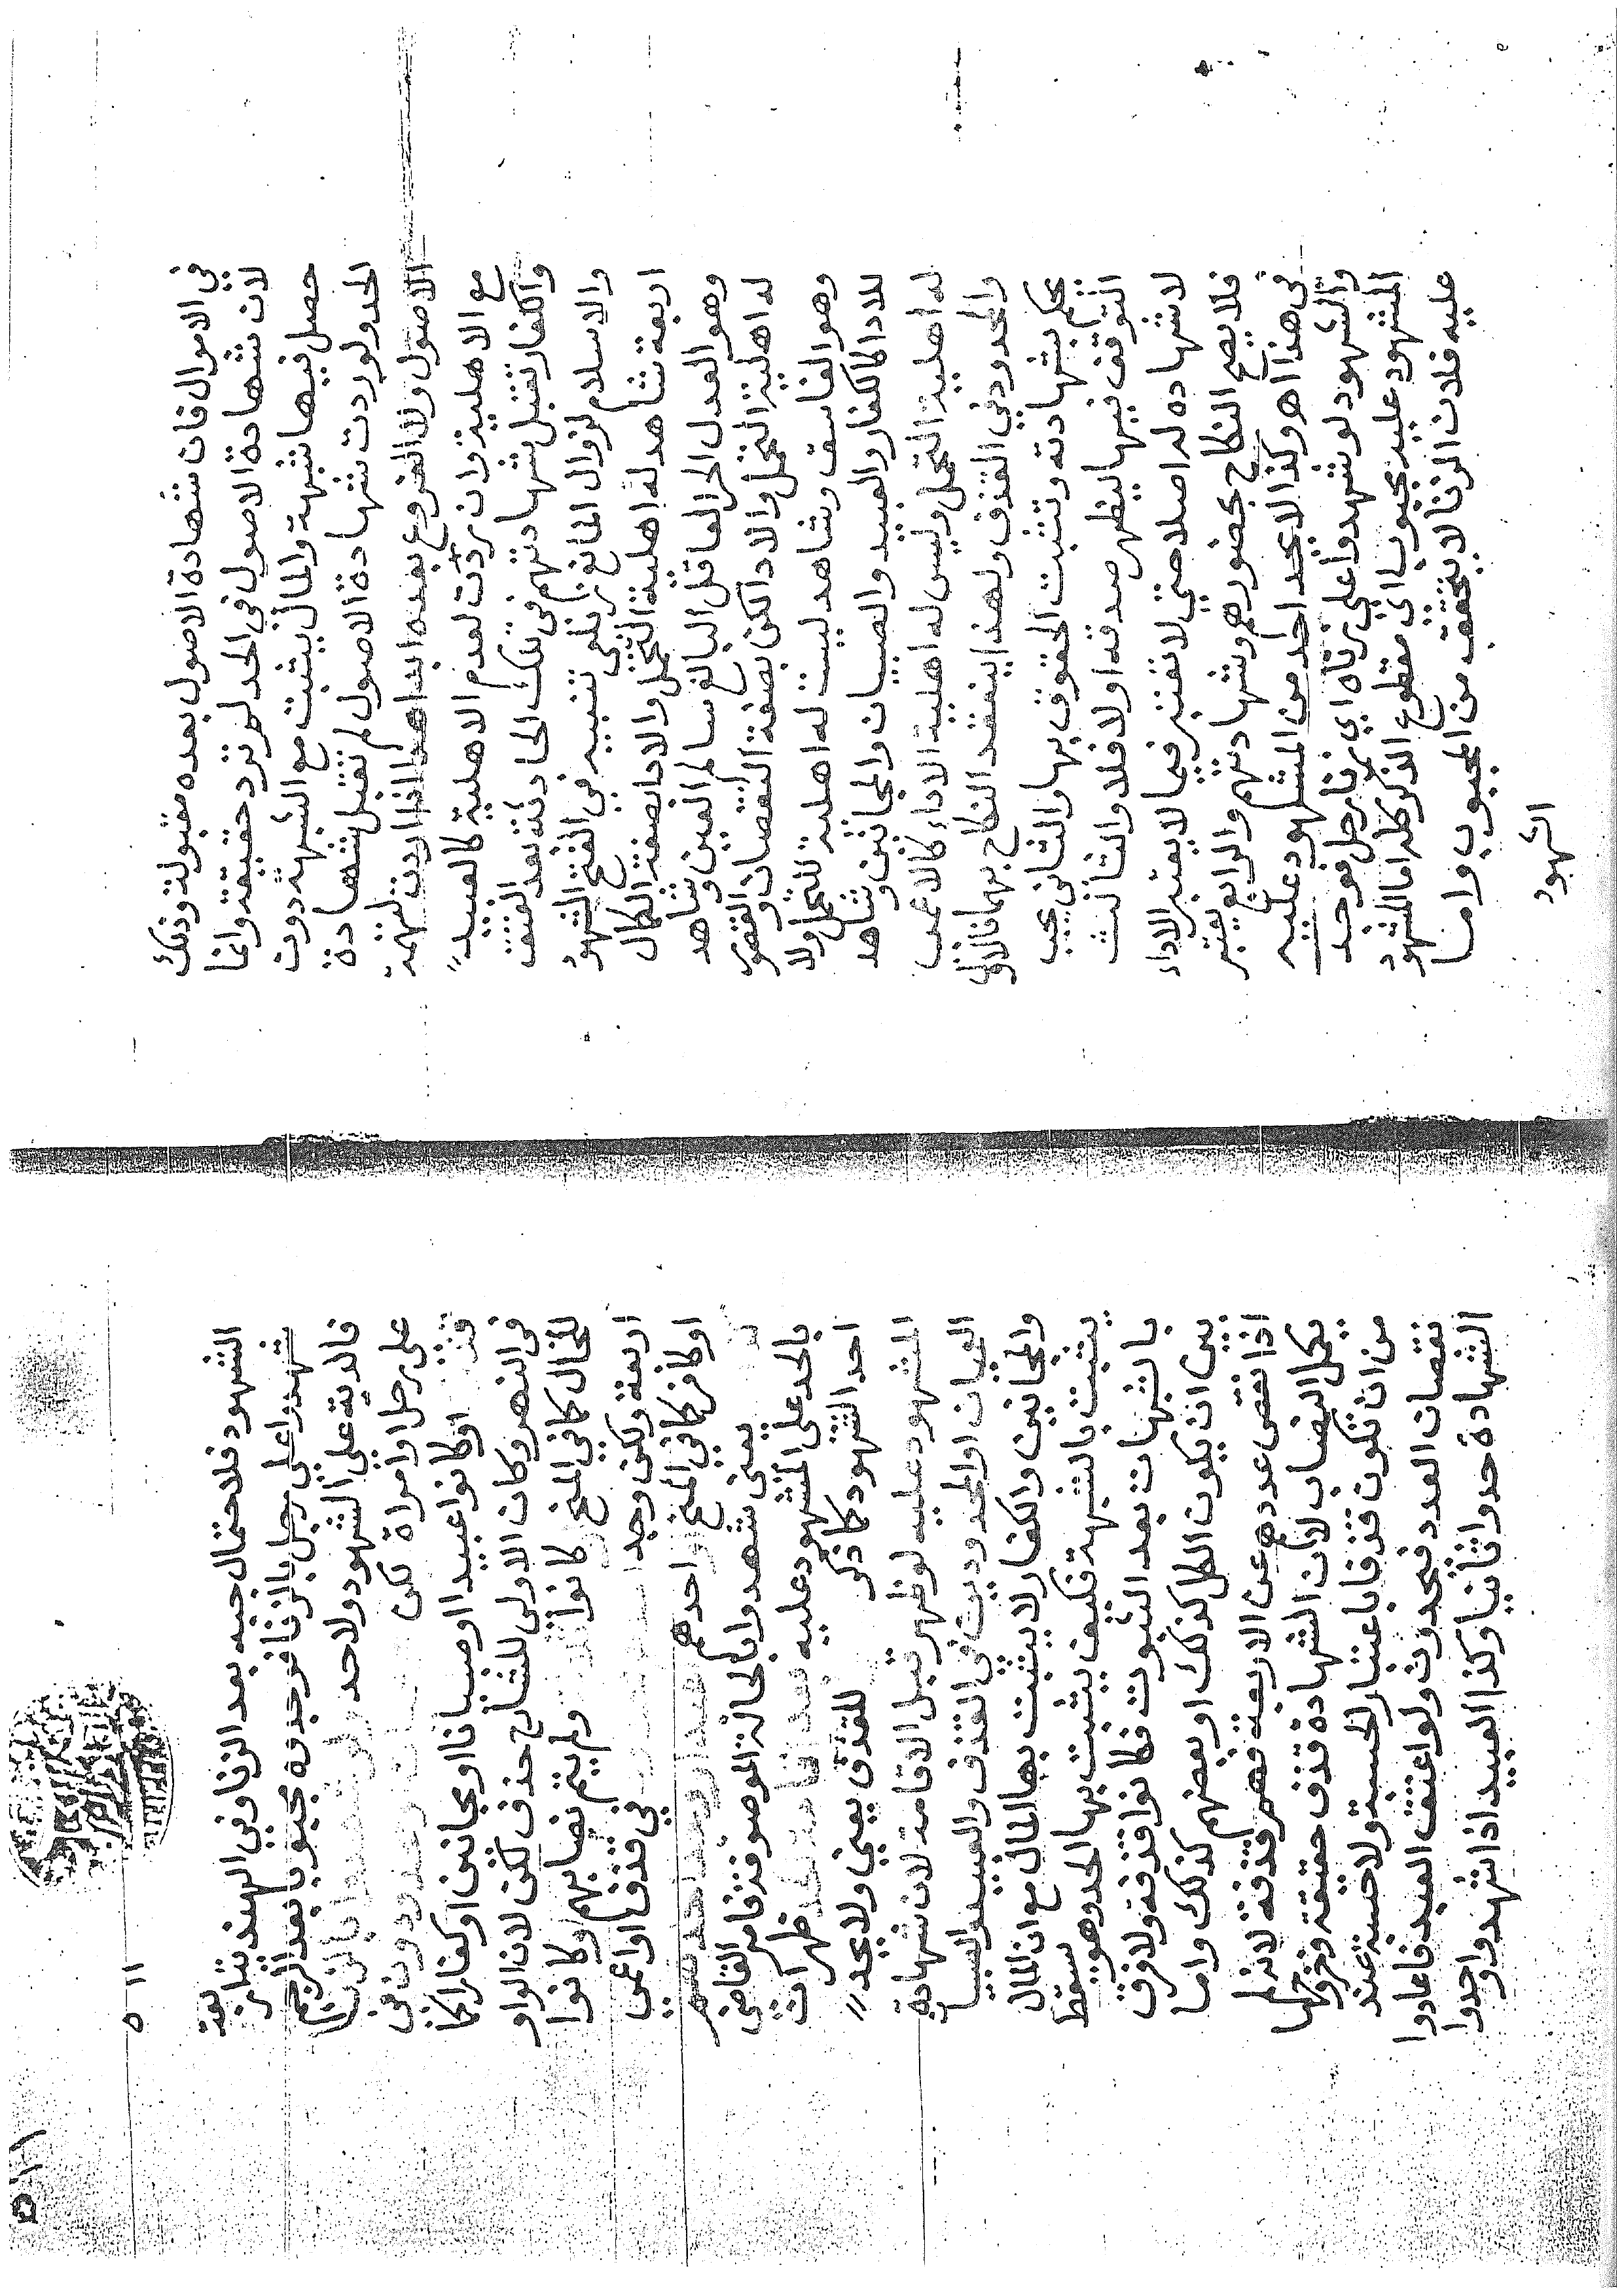 في الاموال فان شهادة الاصول بعده مقبولة وذلك
لان شهادة الاصول في الحد لم ترد حقيقة وانما
حصل فيها شبهة والمال يثبت مع الشبهة دون
الحد ولو ردت شهادة الاصول لم تقبل شهادة
الاصول ولا الفروع بعده ابدا هذا اذا ردت لتهمة
مع الاهلية وان ردت لعدم الاهلية كالعبيد
والكفار تقبل شهادتهم في تلك الحادثة بعد العتق
والاسلام لزوال المانع تنبيه في الفتح الشهود
اربعة شاهد له اهلية التحمل والادا بصفة الكمال
وهو العدل الحر العاقل البالغ سالم العين وشاهد
له اهلية التحمل والادا لكن بصفة النقصان والقصور
وهو الفاسق وشاهد ليست له اهلية للتحمل ولا
للادا كالكفار والعبيد والصبيان والمجانين وشاهد
له اهلية التحمل وليس له اهلية الاداء كالاعمى
والمحدود في القذف ولهذا ينعقد النكاح بهما فالاول
يحكم بشهادته وتثبت الحقوق بها والثاني يجب
التوقف فيها ليظهر صدقه اولا فلا والثالث
لا شهاده له اصلا حتى لا تعتبر فيما لا يعتبر الاداء
فلا يصح النكاح بحضورهم وشهادتهم والرابع يعتبر
في هذا اهـ وكذا لا يحد احد من المشهود عليه
والشهود لو شهدوا على زناه اي زنا رجل فوجد
المشهود عليه مجبوب اي مقطوع الذكر كله اما المشهود
عليه فلان الزنا لا يتحقق من المجبوب واما
الشهود
١١ ٥
الشهود فلاحتمال جبه بعد الزنا وفي الهندية
شهدوا على رجل بالزنا فرجم فوجدوه مجبوبا بعد الرجم
فالدية على الشهود ولا حد ولو شهدوا بالزنا
على رجل او امراة لكن
او كانوا عبيدا او صبيانا او مجانين او كفارا كما
في النهر وكان الاولى للشارح حذف لكن لان الواو
للحال كما في المنح كانوا ولم يتم نصابهم وكانوا
اربعة ولكن وجدا في قذف او اعمى
او كافر كما في المنح احدهم
يعني شهدوا بالحالة الموصوفة فامر القاضي
بالحد على المشهود عليه ظهر ان
احد الشهود كما ذكر للقذف يعني ولا يحد
المشهود عليه لو ظهر قبل الاقامة لان شهادة
العميان او المحدودين في القذف والعبيد
والمجانين والكفار لا يثبت بها المال مع ان المال
يثبت بالشبهة فكيف يثبت بها الحد وهو يسقط
بالشبهات بعد الثبوت فكانوا قذفة ولا فرق
بين ان يكون الكل كذلك او بعضهم كذلك واما
اذا نقص عددهم عن الاربعة فهم قذفة لانه لم
يكمل النصاب لان الشهادة قذف حقيقة وخروجها
من ان تكون قذفا باعتبار الحسبة ولا حسبة عند
نقصان العدد فيحدون ولو اعتق العبد فاعادوا
الشهادة حدوا ثانيا وكذا العبيد اذا شهدوا وحدوا